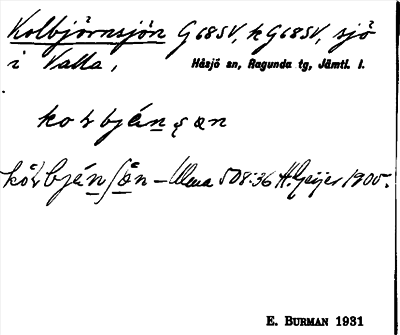 Kolbjörnsjön G 68 SV, h G 68 SV, sjö
i Valla, Håsjö sn, Ragunda tg, Jämtl. l.
kobbjénsǝn
kólbjénſȯ̀n – Ulma 508:36 H. Geijer 1905.
E. BURMAN 1931